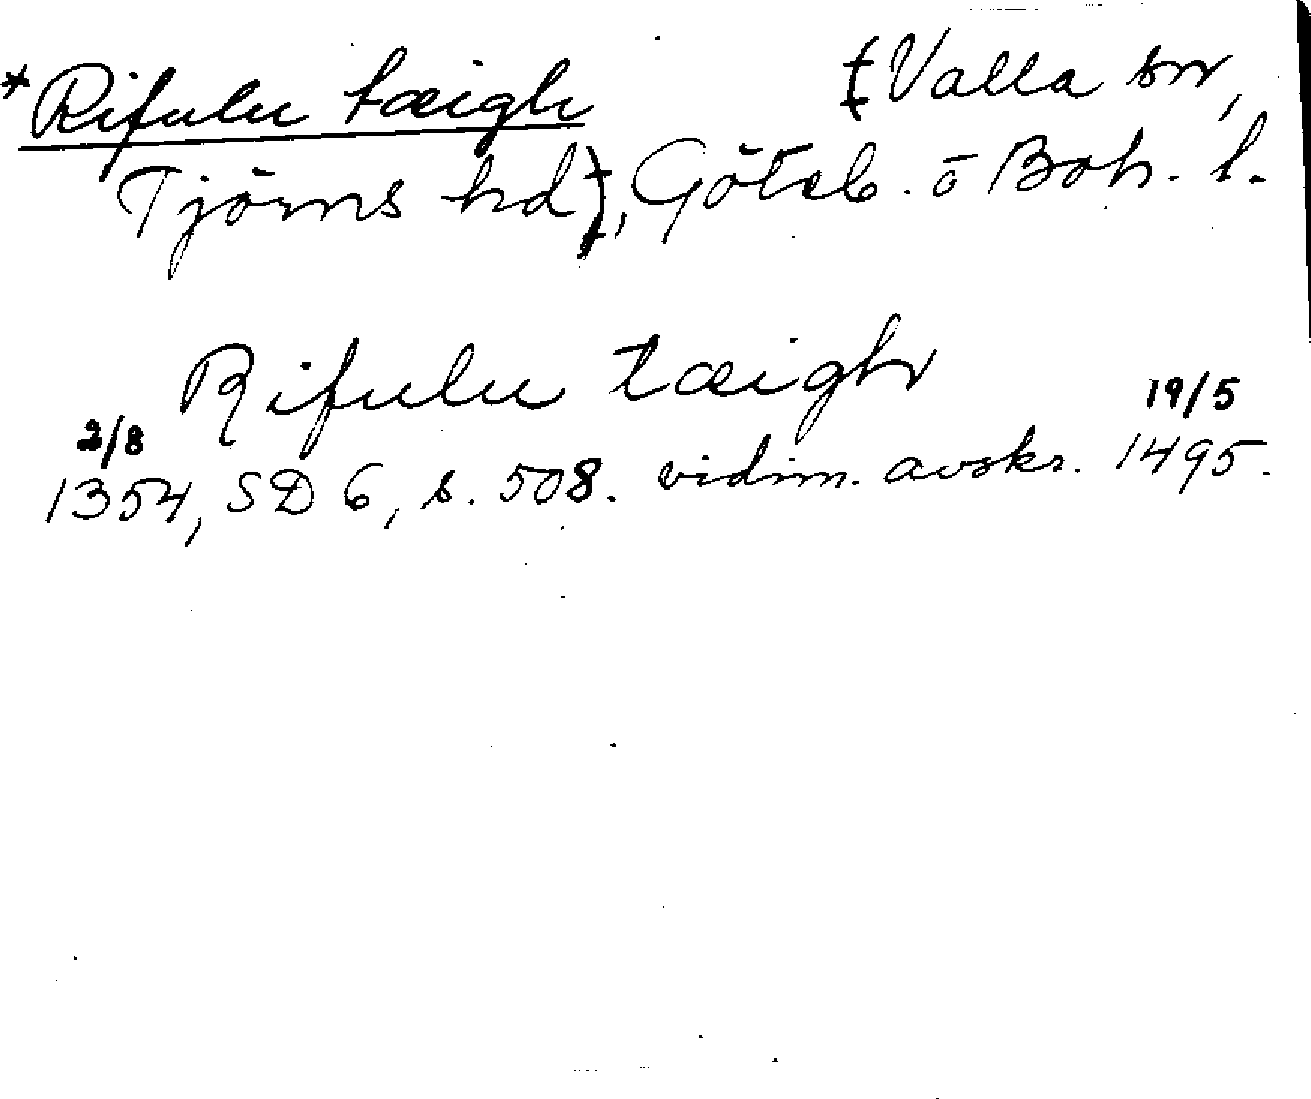 *Rifulu tæigh (Valla sn,
Tjörns hd), Göteb. o Boh. l.
Rifulu tæigh
2/8 19/5
1354, SD 6, s. 508. vidim. avskr. 1495.